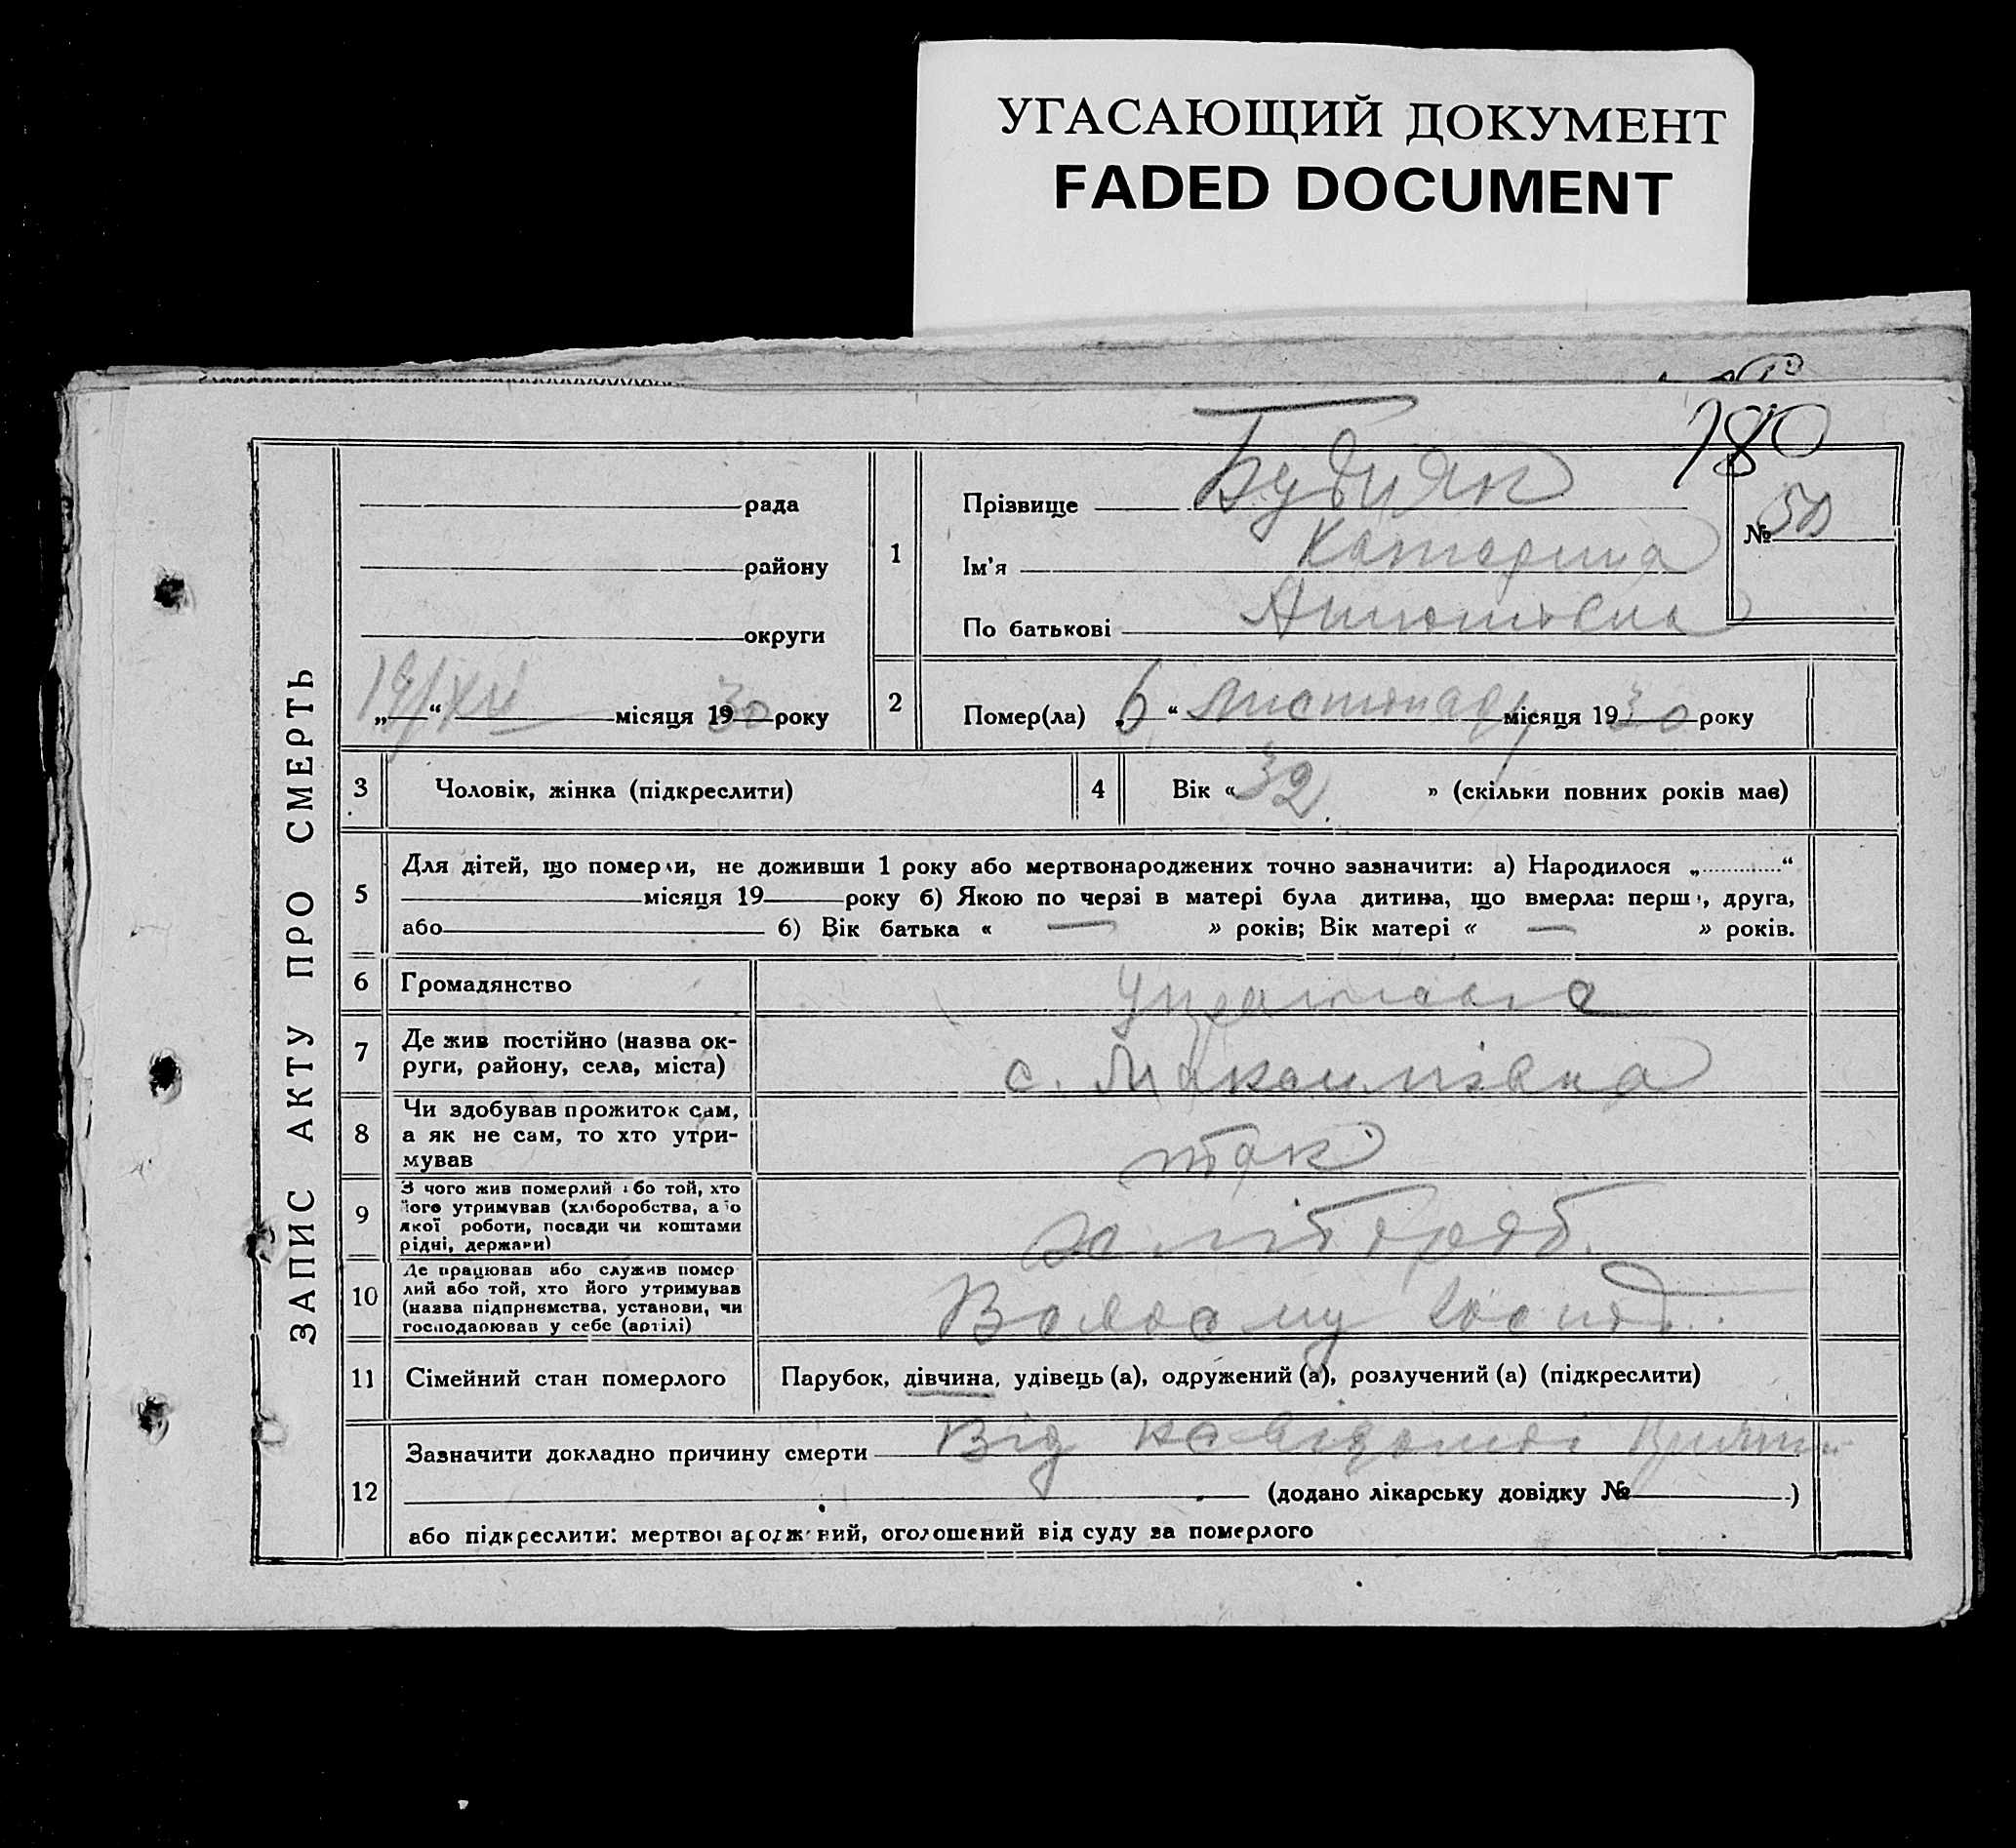 УГАСАЮЩИЙ ДОКУМЕНТ
FADED DOCUMENT
180
ЗАПИС АКТУ ПРО СМЕРТЬ
рада
району
округи
„19/XII“ місяця 1930 року
1
Прізвище Будняк
Ім'я Катерина
По батькові
№ 50
2
Помер(ла) „6“ Листопада місяця 1930 року
3
Чоловік, жінка (підкреслити)
4
Вік «32» (скільки повних років має)
5
Для дітей, що померли, не доживши 1 року або мертвонароджених точно зазначити: а) Народилося „ “
місяця 19 року б) Якою по черзі в матері була дитина, що вмерла: перша, друга,
або б) Вік батька « — » років; Вік матері « — » років.
6
Громадянство
7
Де жив постійно (назва ок-
руги, району, села, міста)
с.
8
Чи здобував прожиток сам,
а як не сам, то хто утри-
мував
так
9
З чого жив померлий або той, хто
його утримував (хліборобства, або
якої роботи, посади чи коштами
рідні, держави)
10
Де працював або служив помер
лий або той, хто його утримував
(назва підприємства, установи, чи
господарював у себе (артілі)
11
Сімейний стан померлого
Парубок, дівчина, удівець (а), одружений (а), розлучений (а) (підкреслити)
12
Зазначити докладно причину смерти Від невідомої
(додано лікарську довідку № )
або підкреслити: мертвонароджений, оголошений від суду за померлого